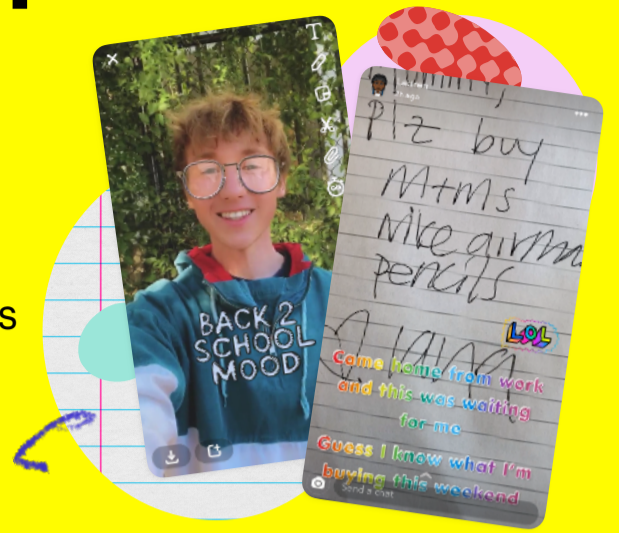 s
T
BACK 2
SCHOOL
MOOD
Plz buy
M+Ms
Nike
pencils
LOL
Came home from work
and this was waiting
for me
Guess I know what I'm
buying this weekend
Send a chat